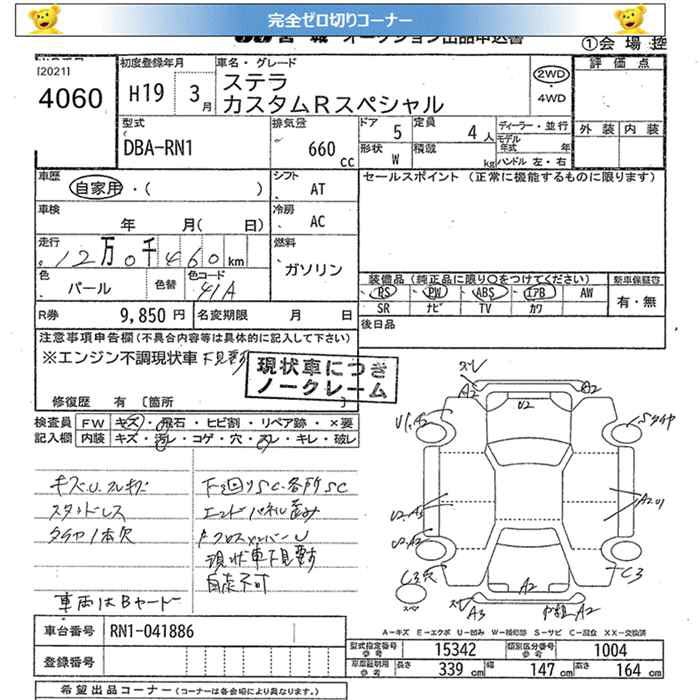 完全ゼロ切りコーナー
宮城 オークション出品申込書
①会場控
[2021]
4060
初度登録年月
H19 3月
車名・グレード
ステラ
カスタムRスペシャル
2WD
・4WD
評価点
外装 内装
型式
DBA-RN1
排気量
660 cc
ドア 5
定員 4人
形状 W
積載 kg
ディーラー・並行
モデル年式 年
ハンドル 左・右
車歴
自家用・( )
シフト AT
セールスポイント (正常に機能するものに限ります)
車検
年 月( 日)
冷房 AC
走行
12万0千460km
燃料
ガソリン
色
パール
色替
色コード
41A
装備品(純正品に限り○をつけてください)
新車保証書
PS PW ABS エアB AW
SR ナビ TV カワ
有・無
R券 9,850円
名変期限 月 日
後日品
注意事項申告欄(不具合内容等は具体的に記入して下さい)
※エンジン不調現状車 下見要
現状車につき
ノークレーム
修復歴 有 〔箇所
検査員 FW キズ・飛石・ヒビ割・リペア跡・×要
記入欄 内装 キズ・汚レ・コゲ・穴・スレ・キレ・破レ
キズU.
スタッドレス
タイヤ1本欠
車両はBヤード
下廻りSC・各所SC
エンドパネル歪み
現状車下見要
自走不可
ズレ
A2
A2
U2
U1.A2
Sタイヤ
U2.A3
U2.A2
A2U1
C3穴
C3
A2
ズレ
A3
A2
スペア
A-キズ E-エクボ U-凹み W-補修跡 S-サビ C-腐食 XX-交換済
車台番号 RN1-041886
登録番号
型式指定番号 参考 15342
類別区分番号 参考 1004
車庫証明用 参考 長さ 339cm 幅 147cm 高さ 164cm
希望出品コーナー(コーナーは各会場により異なります。)